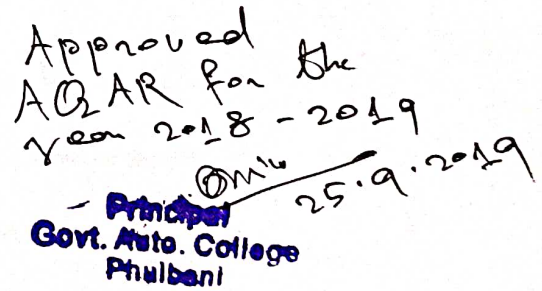 Approved
AQAR for the
year 2018 - 2019
25.9.2019
Principal
Govt. Auto. College
Phulbani